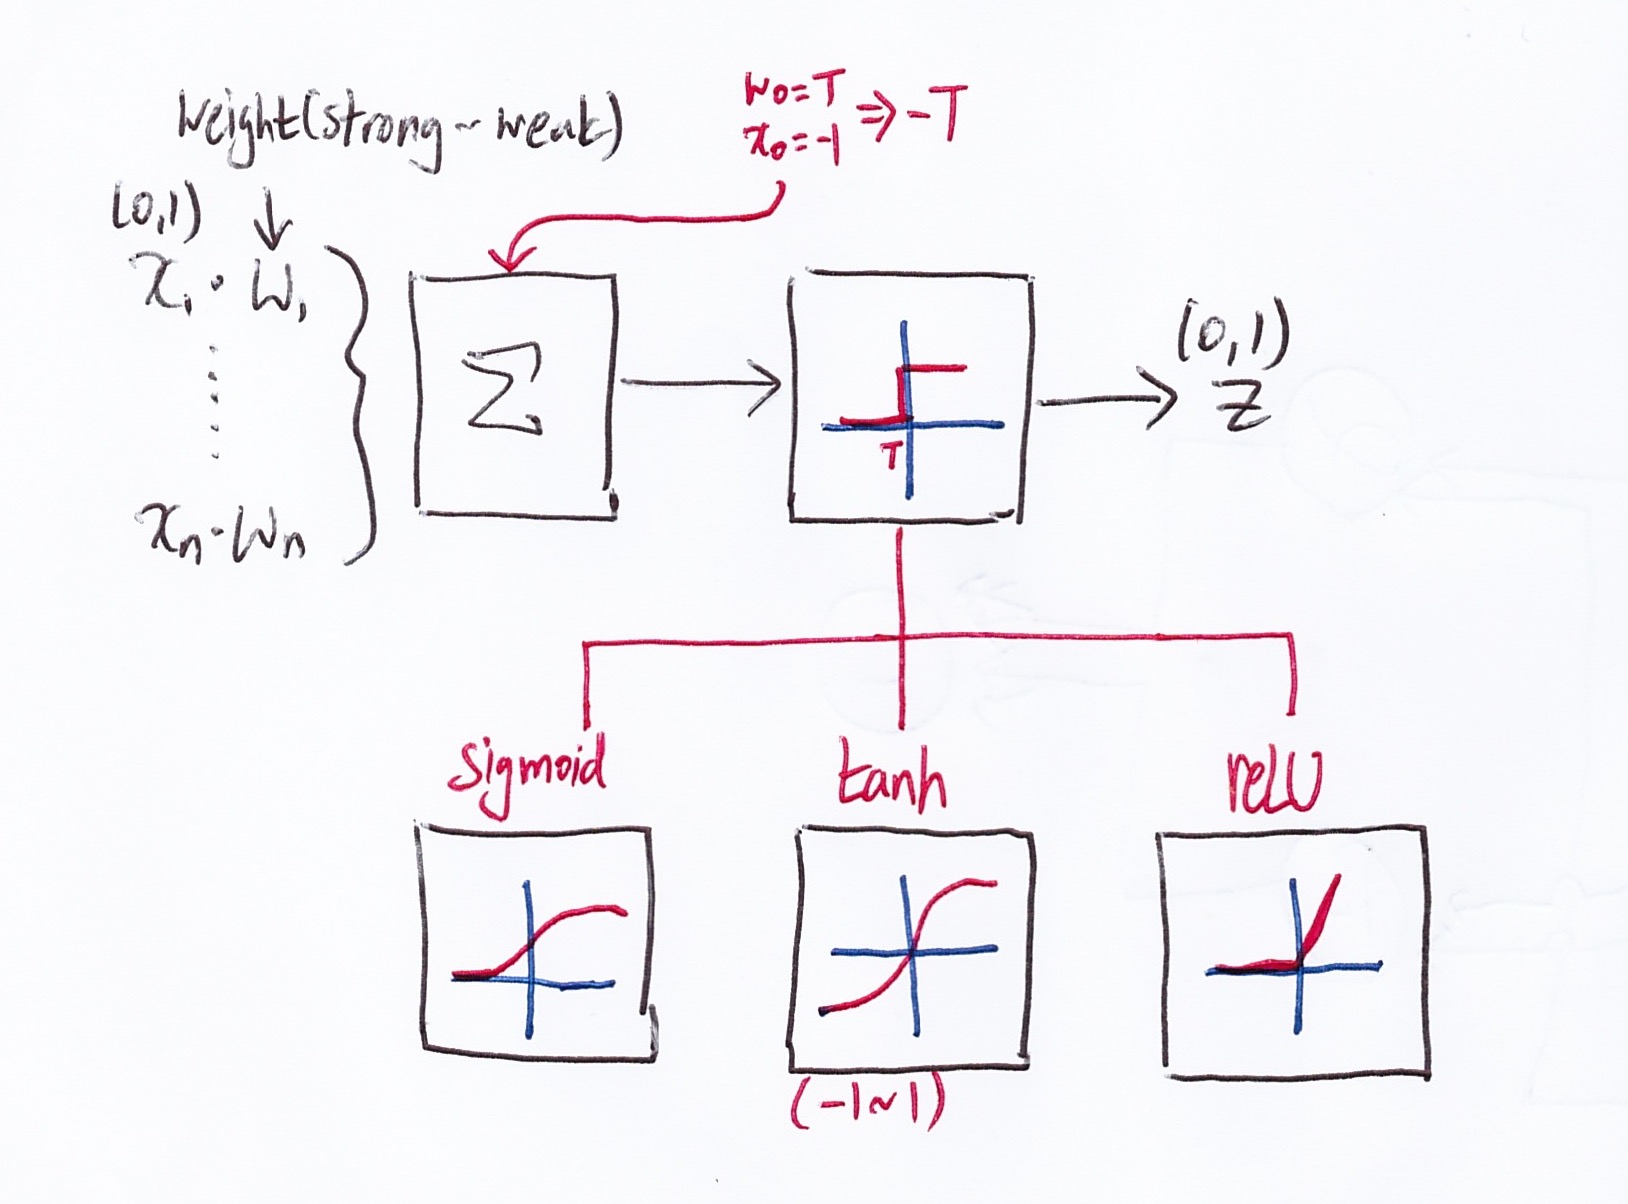 weight(strong~weak)
w₀=T
x₀=-1
⇒-T
(0,1)
x₁·w₁
xₙ·wₙ
Σ
T
(0,1)
z
sigmoid
tanh
reLU
(-1~1)